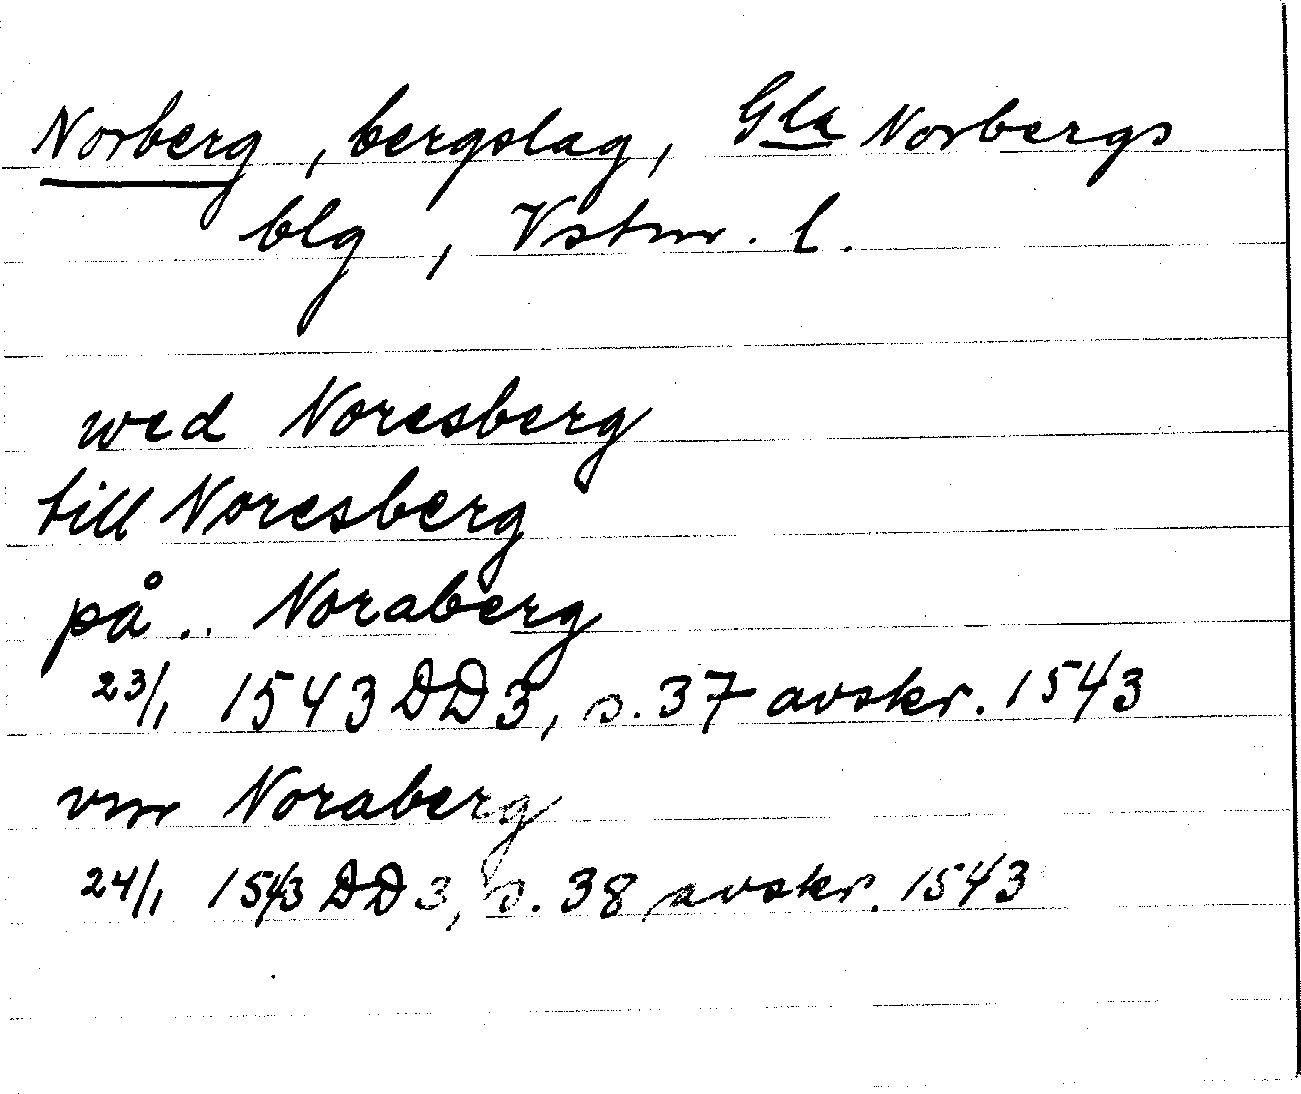 Norberg, bergslag, Gla Norbergs
blg, Vstm. l.
wed Noresberg
till Noresberg
på .. Noraberg
23/1 1543 DD3, s. 37 avskr. 1543
vm Noraberg
24/1 1543 DD3, s. 38 avskr. 1543